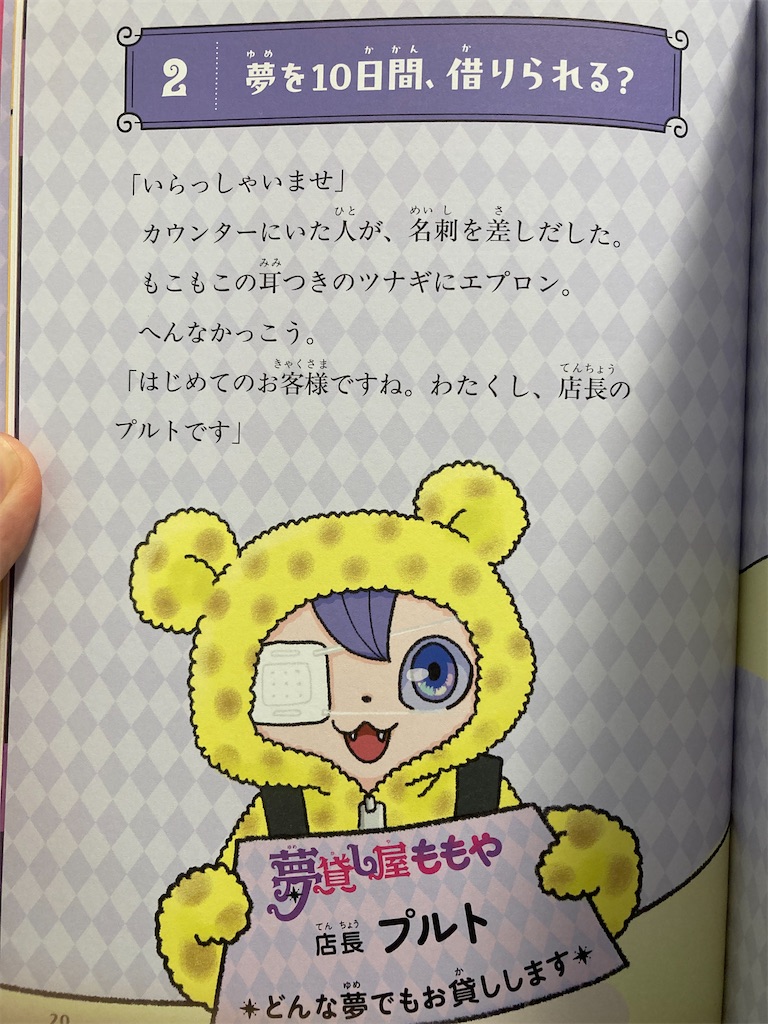 2 夢を10日間、借りられる?
「いらっしゃいませ」
カウンターにいた人が、名刺を差しだした。
もこもこの耳つきのツナギにエプロン。
へんなかっこう。
「はじめてのお客様ですね。わたくし、店長の
プルトです」
夢貸し屋ももや
店長 プルト
どんな夢でもお貸しします
20